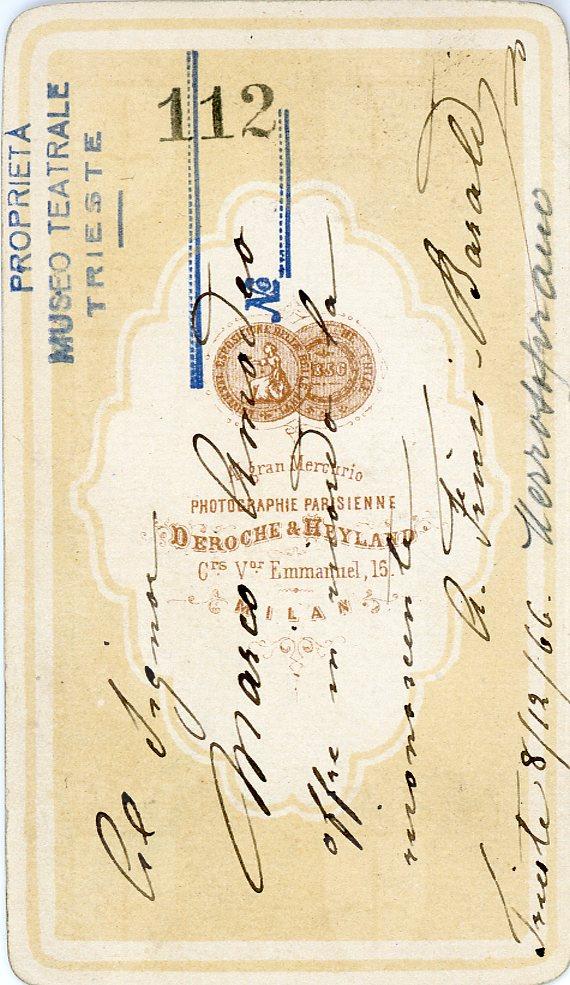 PROPRIETÀ
MUSEO TEATRALE
TRIESTE
112
No
Al gran Mercurio
PHOTOGRAPHIE PARISIENNE
DEROCHE & HEYLAND
Crs Vor Emmanuel, 15.
MILAN
Al Signor
Marco Amodeo
offre in ricordo la
riconoscente
Trieste 8/12/66.